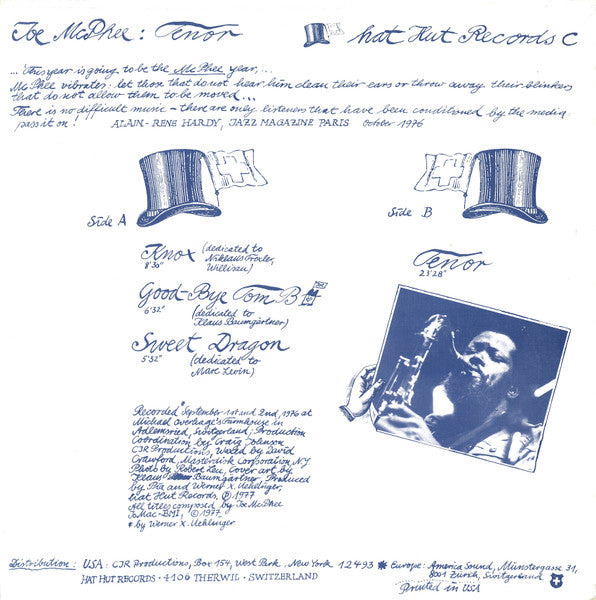 Joe McPhee: Tenor
hat Hut Records C
... This year is going to be the McPhee year, ...
McPhee vibrates: let those that do not hear him clean their ears or throw away their blinkers
that do not allow them to be moved...
There is no difficult music - there are only listeners that have been conditioned by the media.
pass it on! ALAIN-RENE HARDY, JAZZ MAGAZINE PARIS October 1976
Side A
Knox (dedicated to
8'30" Niklaus Troxler,
Willisau)
Good-Bye Tom B
6'32" (dedicated to
Klaus Baumgärtner)
Sweet Dragon
5'32" (dedicated to
Marc Levin)
Side B
Tenor
23'28"
Recorded* September 1st and 2nd, 1976 at
Michael Overhage's farmhouse in
Adlemsried, Switzerland, Production
Coordination by Craig Johnson
CJR Productions, Waxed by David
Crawford, Masterdisk Corporation N.Y.
Photo by Robert Leu, Cover art by
Klaus Baumgärtner, Produced
by Pia and Werner X. Uehlinger,
hat Hut Records, ℗ 1977
All titles composed by Joe McPhee
JoMac-BMI, ©1977
* by Werner X. Uehlinger
Distribution: USA: CJR Productions, Box 154, West Park, New York 12493 * Europe: America Sound, Münstergasse 31,
8001 Zürich, Switzerland
HAT HUT RECORDS · 4106 THERWIL · SWITZERLAND
Printed in USA